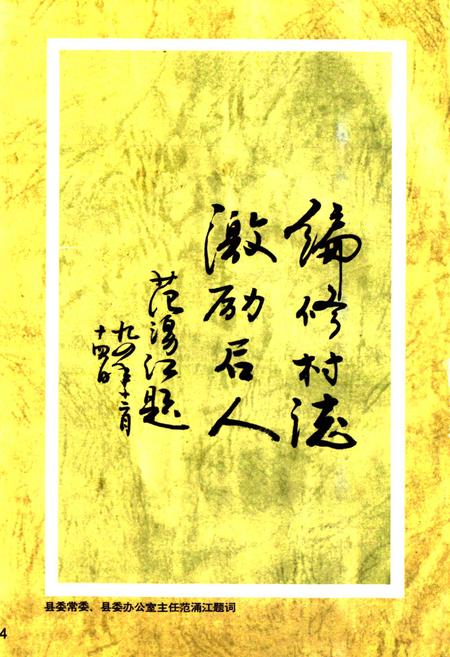 编修村志
激励后人
范涌江题
九四年十二月
十四日
县委常委、县委办公室主任范涌江题词
4